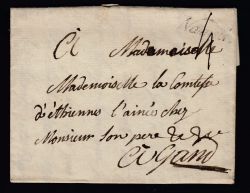 A Mademoiselle
Mademoiselle la Comtesse
d'étbiennes l'ainée chez
Monsieur son pere
A Gand